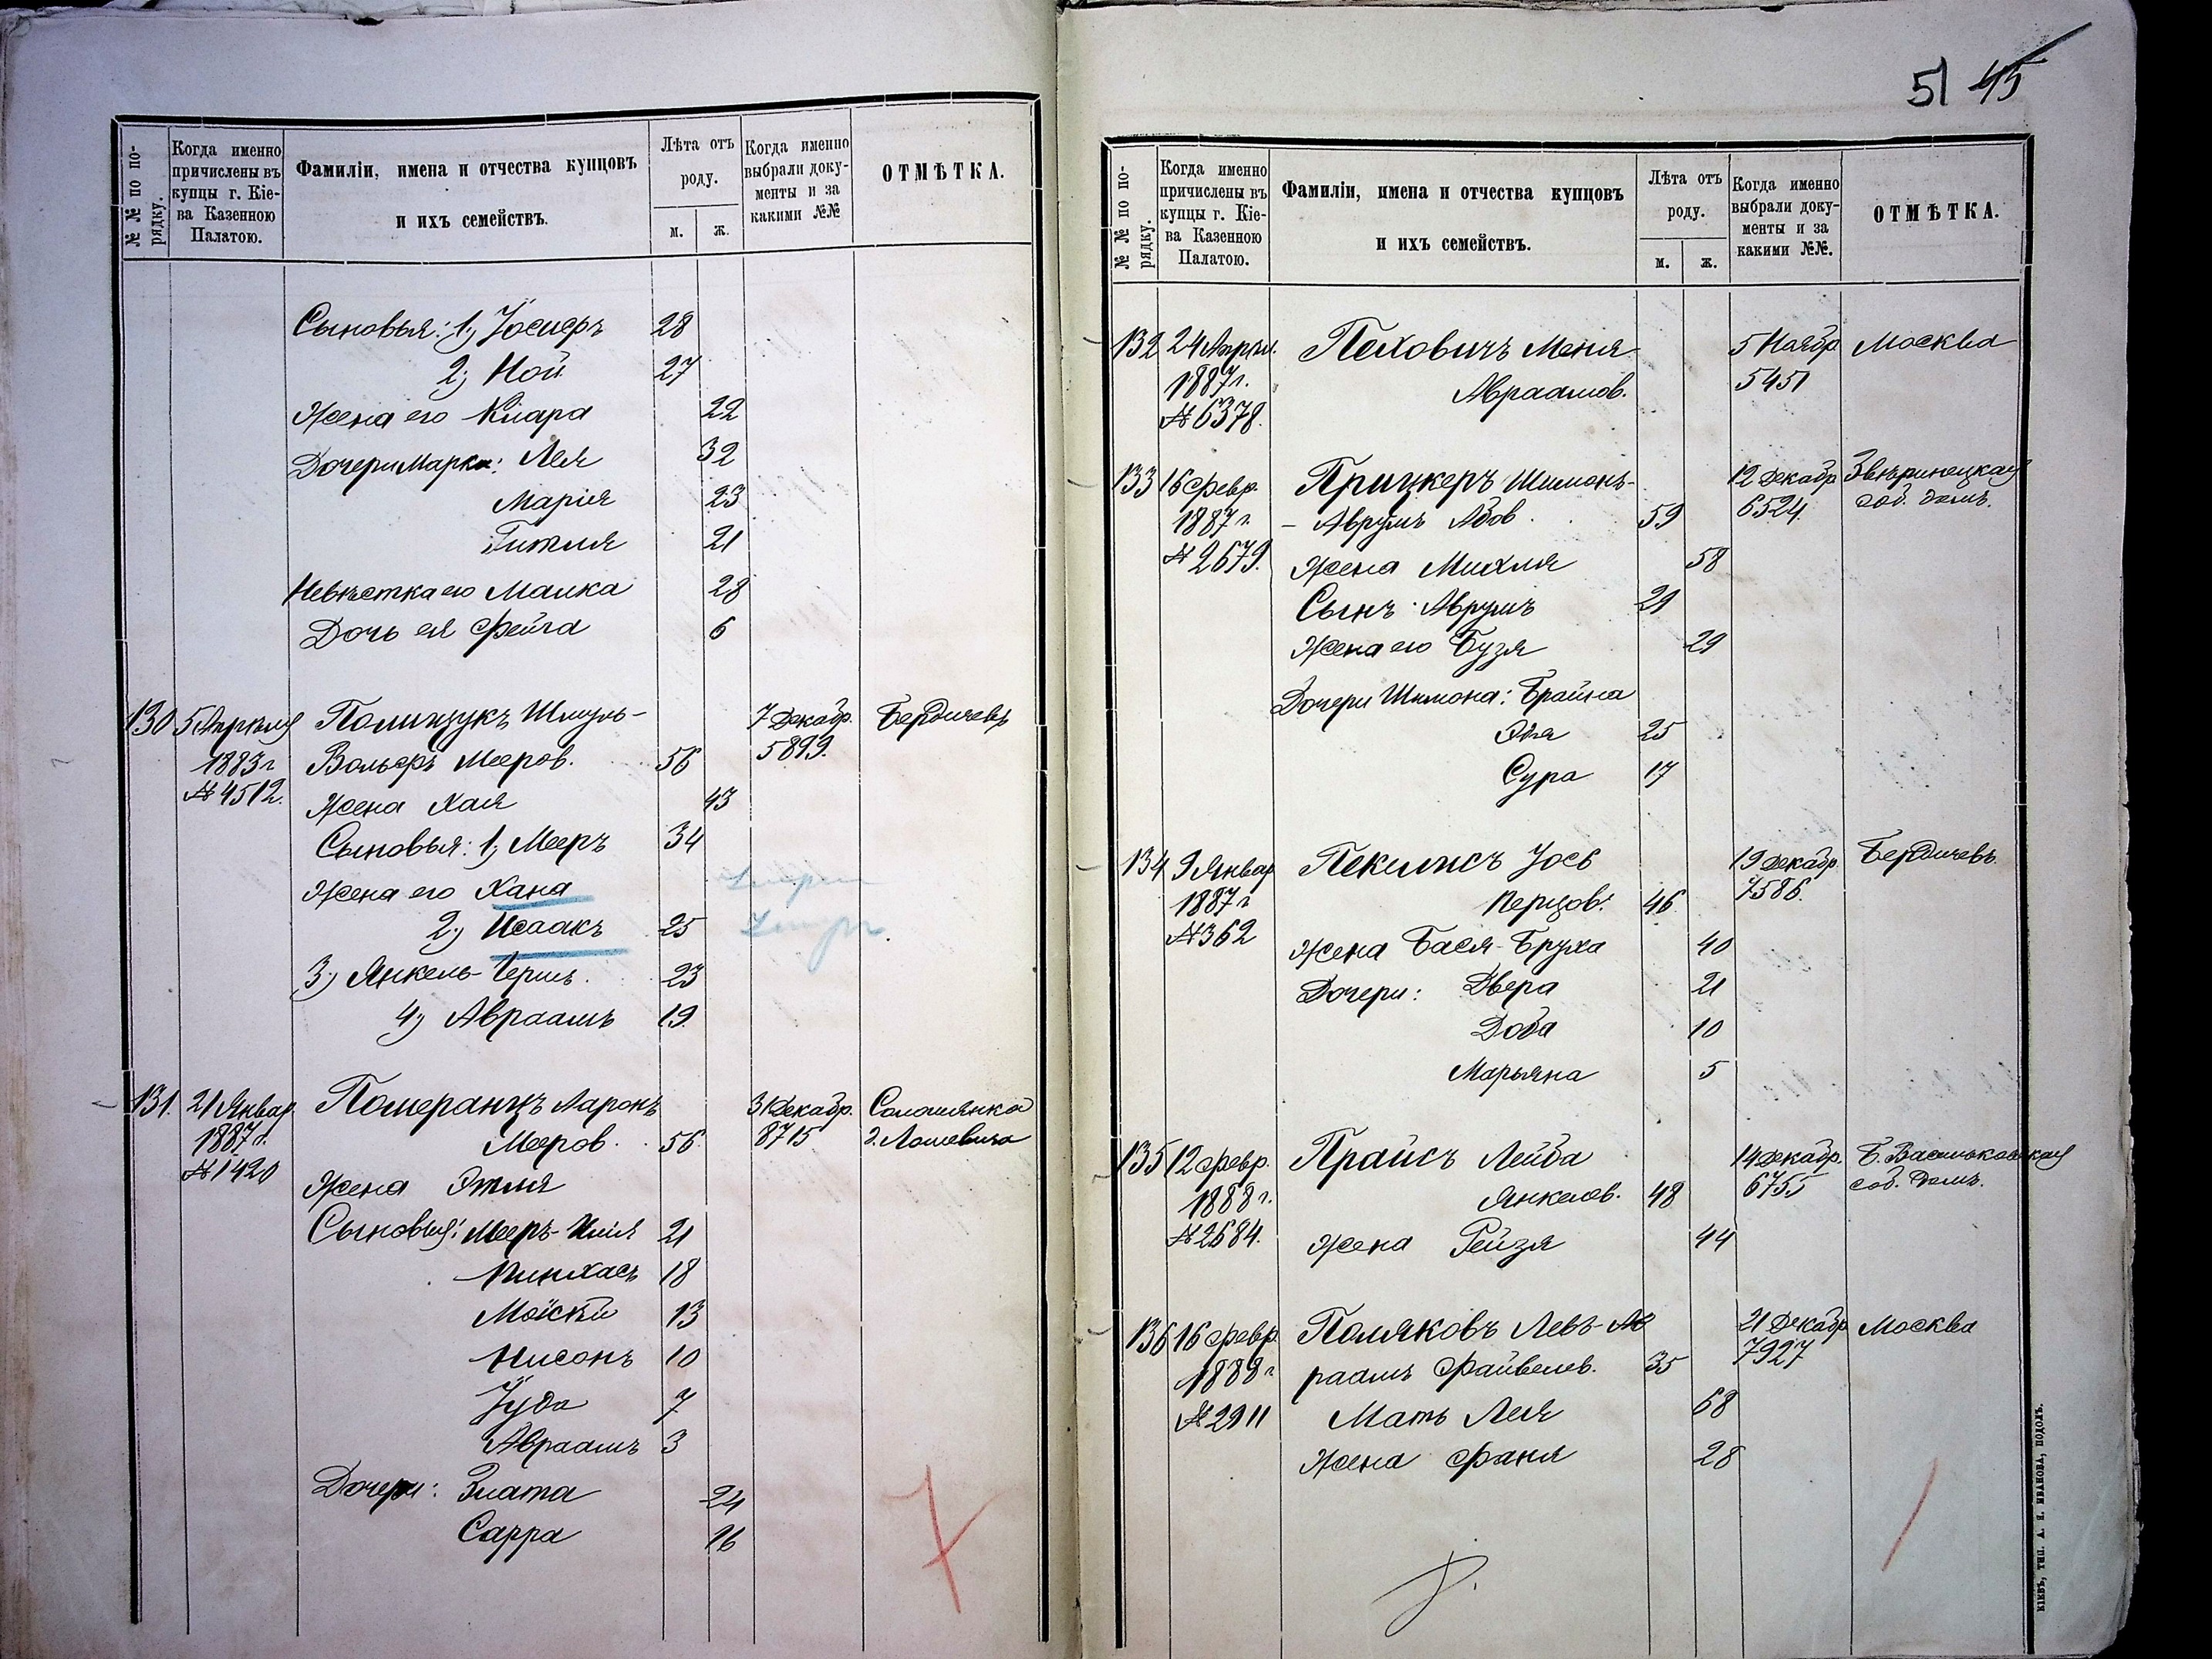 №№ по порядку.
Когда именно причислены въ купцы г. Кіева Казенною Палатою.
Фамиліи, имена и отчества купцовъ и ихъ семействъ.
Лѣта отъ роду.
м. ж.
Когда именно выбрали документы и за какими №№
ОТМѢТКА.
Сыновья: 1, Іосифъ 28
2, Ной 27
Жена его Клара 22
Дочери Марка: Лея 32
Марія 23
Гитля 21
Невѣстка его Малка 28
Дочь ея Фейга 6
130 5 Апрѣля Полищукъ Шмуль- 7 Декабр. Бердичевъ
1883 г. Вольфъ Мееров. 56 5899.
№ 4512. Жена Хая 43
Сыновья: 1, Мееръ 34
Жена его Хана
2, Исаакъ 25
3, Янкель-Гершъ. 23
4, Авраамъ 19
131. 21 Январ. Померанцъ Ааронъ 31 Декабр. Соломянка
1887 г. Мееров. 56 8715 д. Лошевича
№ 1420 Жена Этля
Сыновья: Мееръ-Илія 21
Пинхасъ 18
Моисѣй 13
Нисонъ 10
Іуда 7
Авраамъ 3
Дочери: Злата 24
Сарра 16
51 45
№№ по порядку.
Когда именно причислены въ купцы г. Кіева Казенною Палатою.
Фамиліи, имена и отчества купцовъ и ихъ семействъ.
Лѣта отъ роду.
м. ж.
Когда именно выбрали документы и за какими №№.
ОТМѢТКА.
132 24 Апрѣл. Пехович​ъ Меня 5 Ноябр Москва
1887 г. Авраамов. 5451
№ 6378.
133 16 Февр. Прицкеръ Шимонъ- 12 Декабр Звѣринецкая
1887 г. – Аврумъ Абов. 59 6524. соб. домъ.
№ 2679. Жена Михля 58
Сынъ Аврумъ 29
Жена его Бузя 29
Дочери Шимона: Брайна
Эйя 25
Сура 17
134 9 Январ Пекелисъ Іось 19 Декабр. Бердичевъ.
1887 г. Перцов. 46 7586.
№ 362 Жена Бася-Бруха 40
Дочери: Двера 21
Доба 10
Марьяна 5
135 12 Февр. Прайсъ Лейба 14 Декабр. Б. Васильковская
1888 г. Янкелев. 48 6755 соб. домъ.
№ 2684. Жена Рейзя 44
136 16 Февр. Поляковъ Левъ-Ав 21 Декабр Москва
1888 г. раамъ Файвелев. 35 7927
№ 2911 Мать Лея 68
Жена Фаня 28
КІЕВЪ, ТИП. А. Н. ИВАНОВА, ПОДОЛЪ.